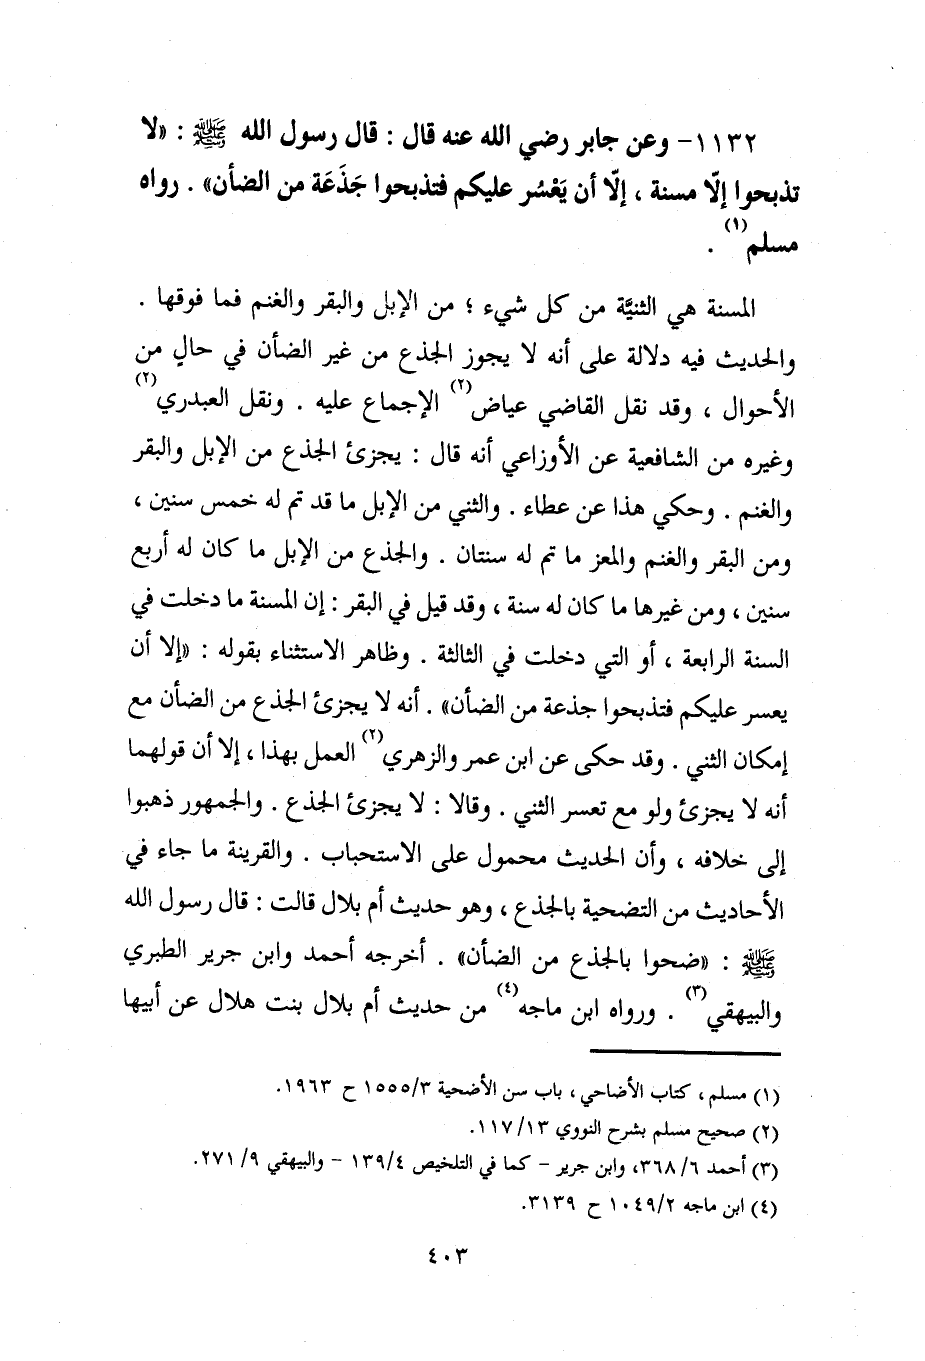 ١١٣٢- وعن جابر رضي الله عنه قال : قال رسول الله ﷺ : «لا
تذبحوا إلّا مسنة ، إلّا أن يَعْسُر عليكم فتذبحوا جَذَعَة من الضأن» . رواه
مسلم(١) .
المسنة هي الثنيَّة من كل شيء ؛ من الإبل والبقر والغنم فما فوقها .
والحديث فيه دلالة على أنه لا يجوز الجذع من غير الضأن في حالٍ من
الأحوال ، وقد نقل القاضي عياض(٢) الإجماع عليه . ونقل العبدري(٢)
وغيره من الشافعية عن الأوزاعي أنه قال : يجزئ الجذع من الإبل والبقر
والغنم . وحكي هذا عن عطاء . والثني من الإبل ما قد تم له خمس سنين ،
ومن البقر والغنم والمعز ما تم له سنتان . والجذع من الإبل ما كان له أربع
سنين ، ومن غيرها ما كان له سنة ، وقد قيل في البقر : إن المسنة ما دخلت في
السنة الرابعة ، أو التي دخلت في الثالثة . وظاهر الاستثناء بقوله : «إلا أن
يعسر عليكم فتذبحوا جذعة من الضأن» . أنه لا يجزئ الجذع من الضأن مع
إمكان الثني . وقد حكى عن ابن عمر والزهري(٢) العمل بهذا ، إلا أن قولهما
أنه لا يجزئ ولو مع تعسر الثني . وقالا : لا يجزئ الجذع . والجمهور ذهبوا
إلى خلافه ، وأن الحديث محمول على الاستحباب . والقرينة ما جاء في
الأحاديث من التضحية بالجذع ، وهو حديث أم بلال قالت : قال رسول الله
ﷺ : «ضحوا بالجذع من الضأن» . أخرجه أحمد وابن جرير الطبري
والبيهقي(٣) . ورواه ابن ماجه(٤) من حديث أم بلال بنت هلال عن أبيها
(١) مسلم، كتاب الأضاحي ، باب سن الأضحية ١٥٥٥/٣ ح ١٩٦٣.
(٢) صحيح مسلم بشرح النووي ١١٧/١٣.
(٣) أحمد ٣٦٨/٦، وابن جرير - كما في التلخيص ١٣٩/٤ - والبيهقي ٢٧١/٩.
(٤) ابن ماجه ١٠٤٩/٢ ح ٣١٣٩.
٤٠٣